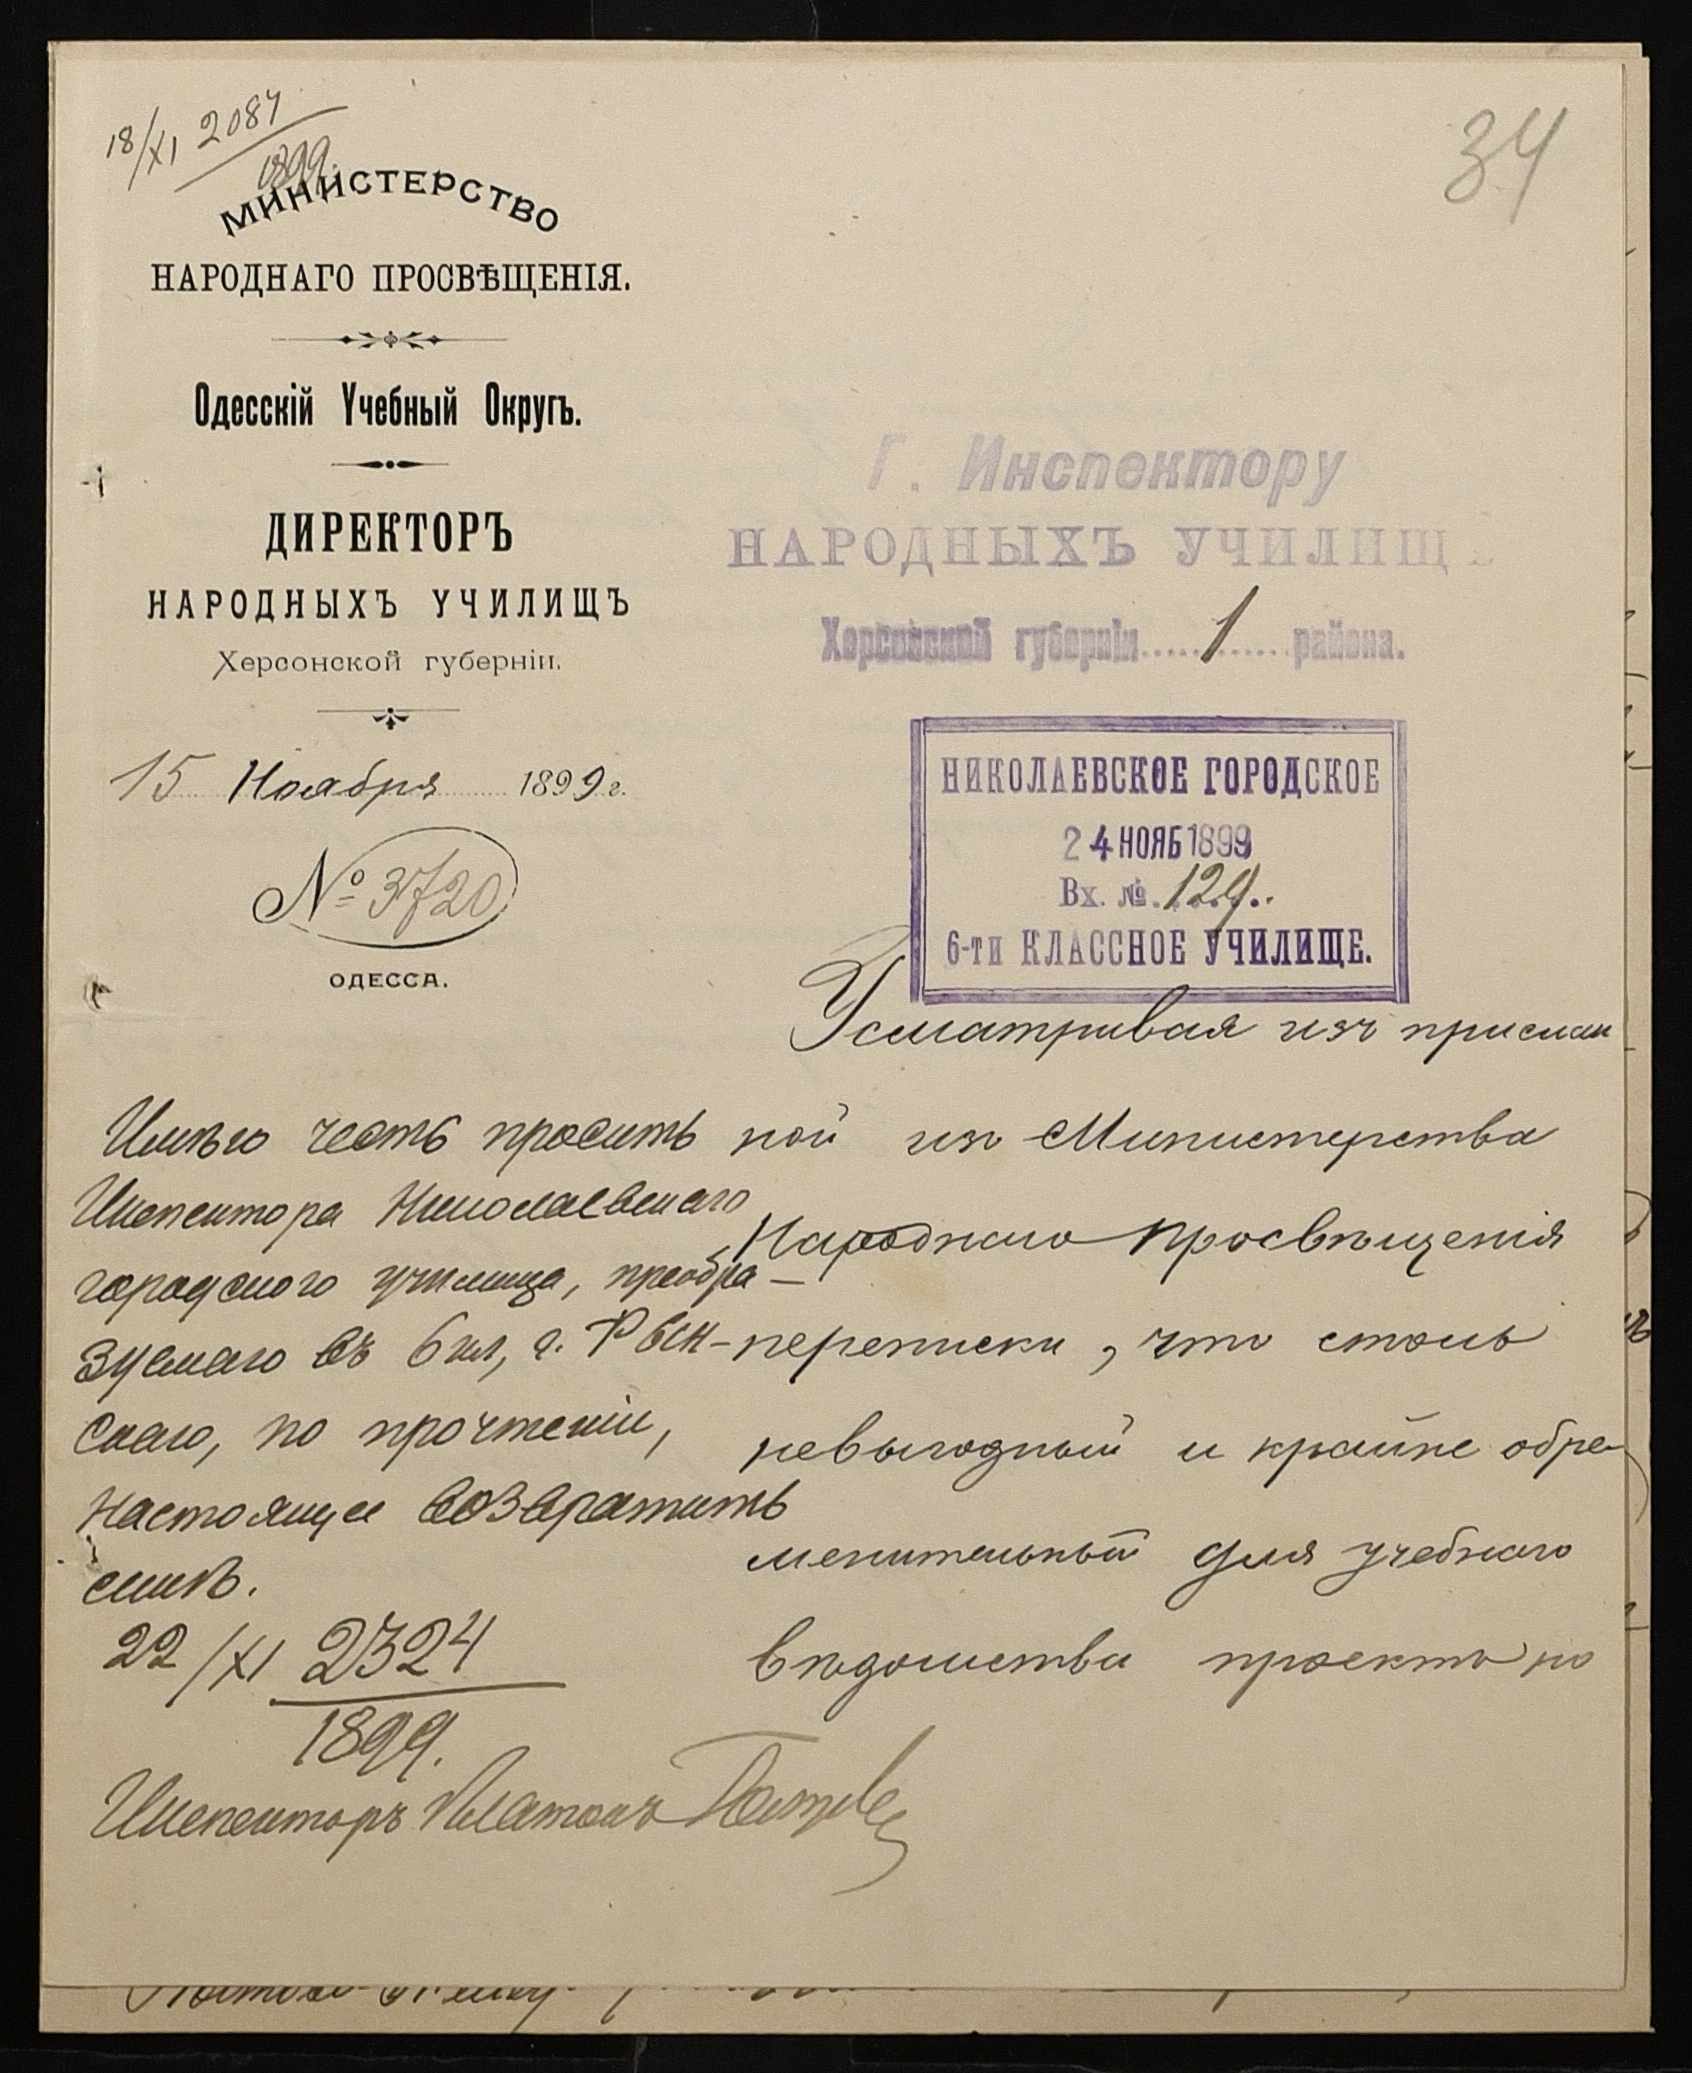 18/XI 2084
1899.
34
МИНИСТЕРСТВО
НАРОДНАГО ПРОСВѢЩЕНІЯ.
Одесскій Учебный Округъ.
ДИРЕКТОРЪ
НАРОДНЫХЪ УЧИЛИЩЪ
Херсонской губерніи.
15 Ноября 1899 г.
№ 3720
ОДЕССА.
Г. Инспектору
НАРОДНЫХЪ УЧИЛИЩЪ
Херсонской губерніи 1 района.
НИКОЛАЕВСКОЕ ГОРОДСКОЕ
24 НОЯБ 1899
Вх. № 129.
6-ти КЛАССНОЕ УЧИЛИЩЕ.
Усматривая изъ прислан
ной изъ Министерства
Народнаго Просвѣщенія
переписки, что столь
невыгодный и крайне обре-
менительный для учебнаго
вѣдомства проектъ по
Имѣю честь просить
Инспектора Николаевскаго
городского училища, преобра-
зуемаго въ 6 кл, г.
скаго, по прочтеніи,
настоящее возвратить
мнѣ.
22/XI 2324
1899.
Инспекторъ Платонъ